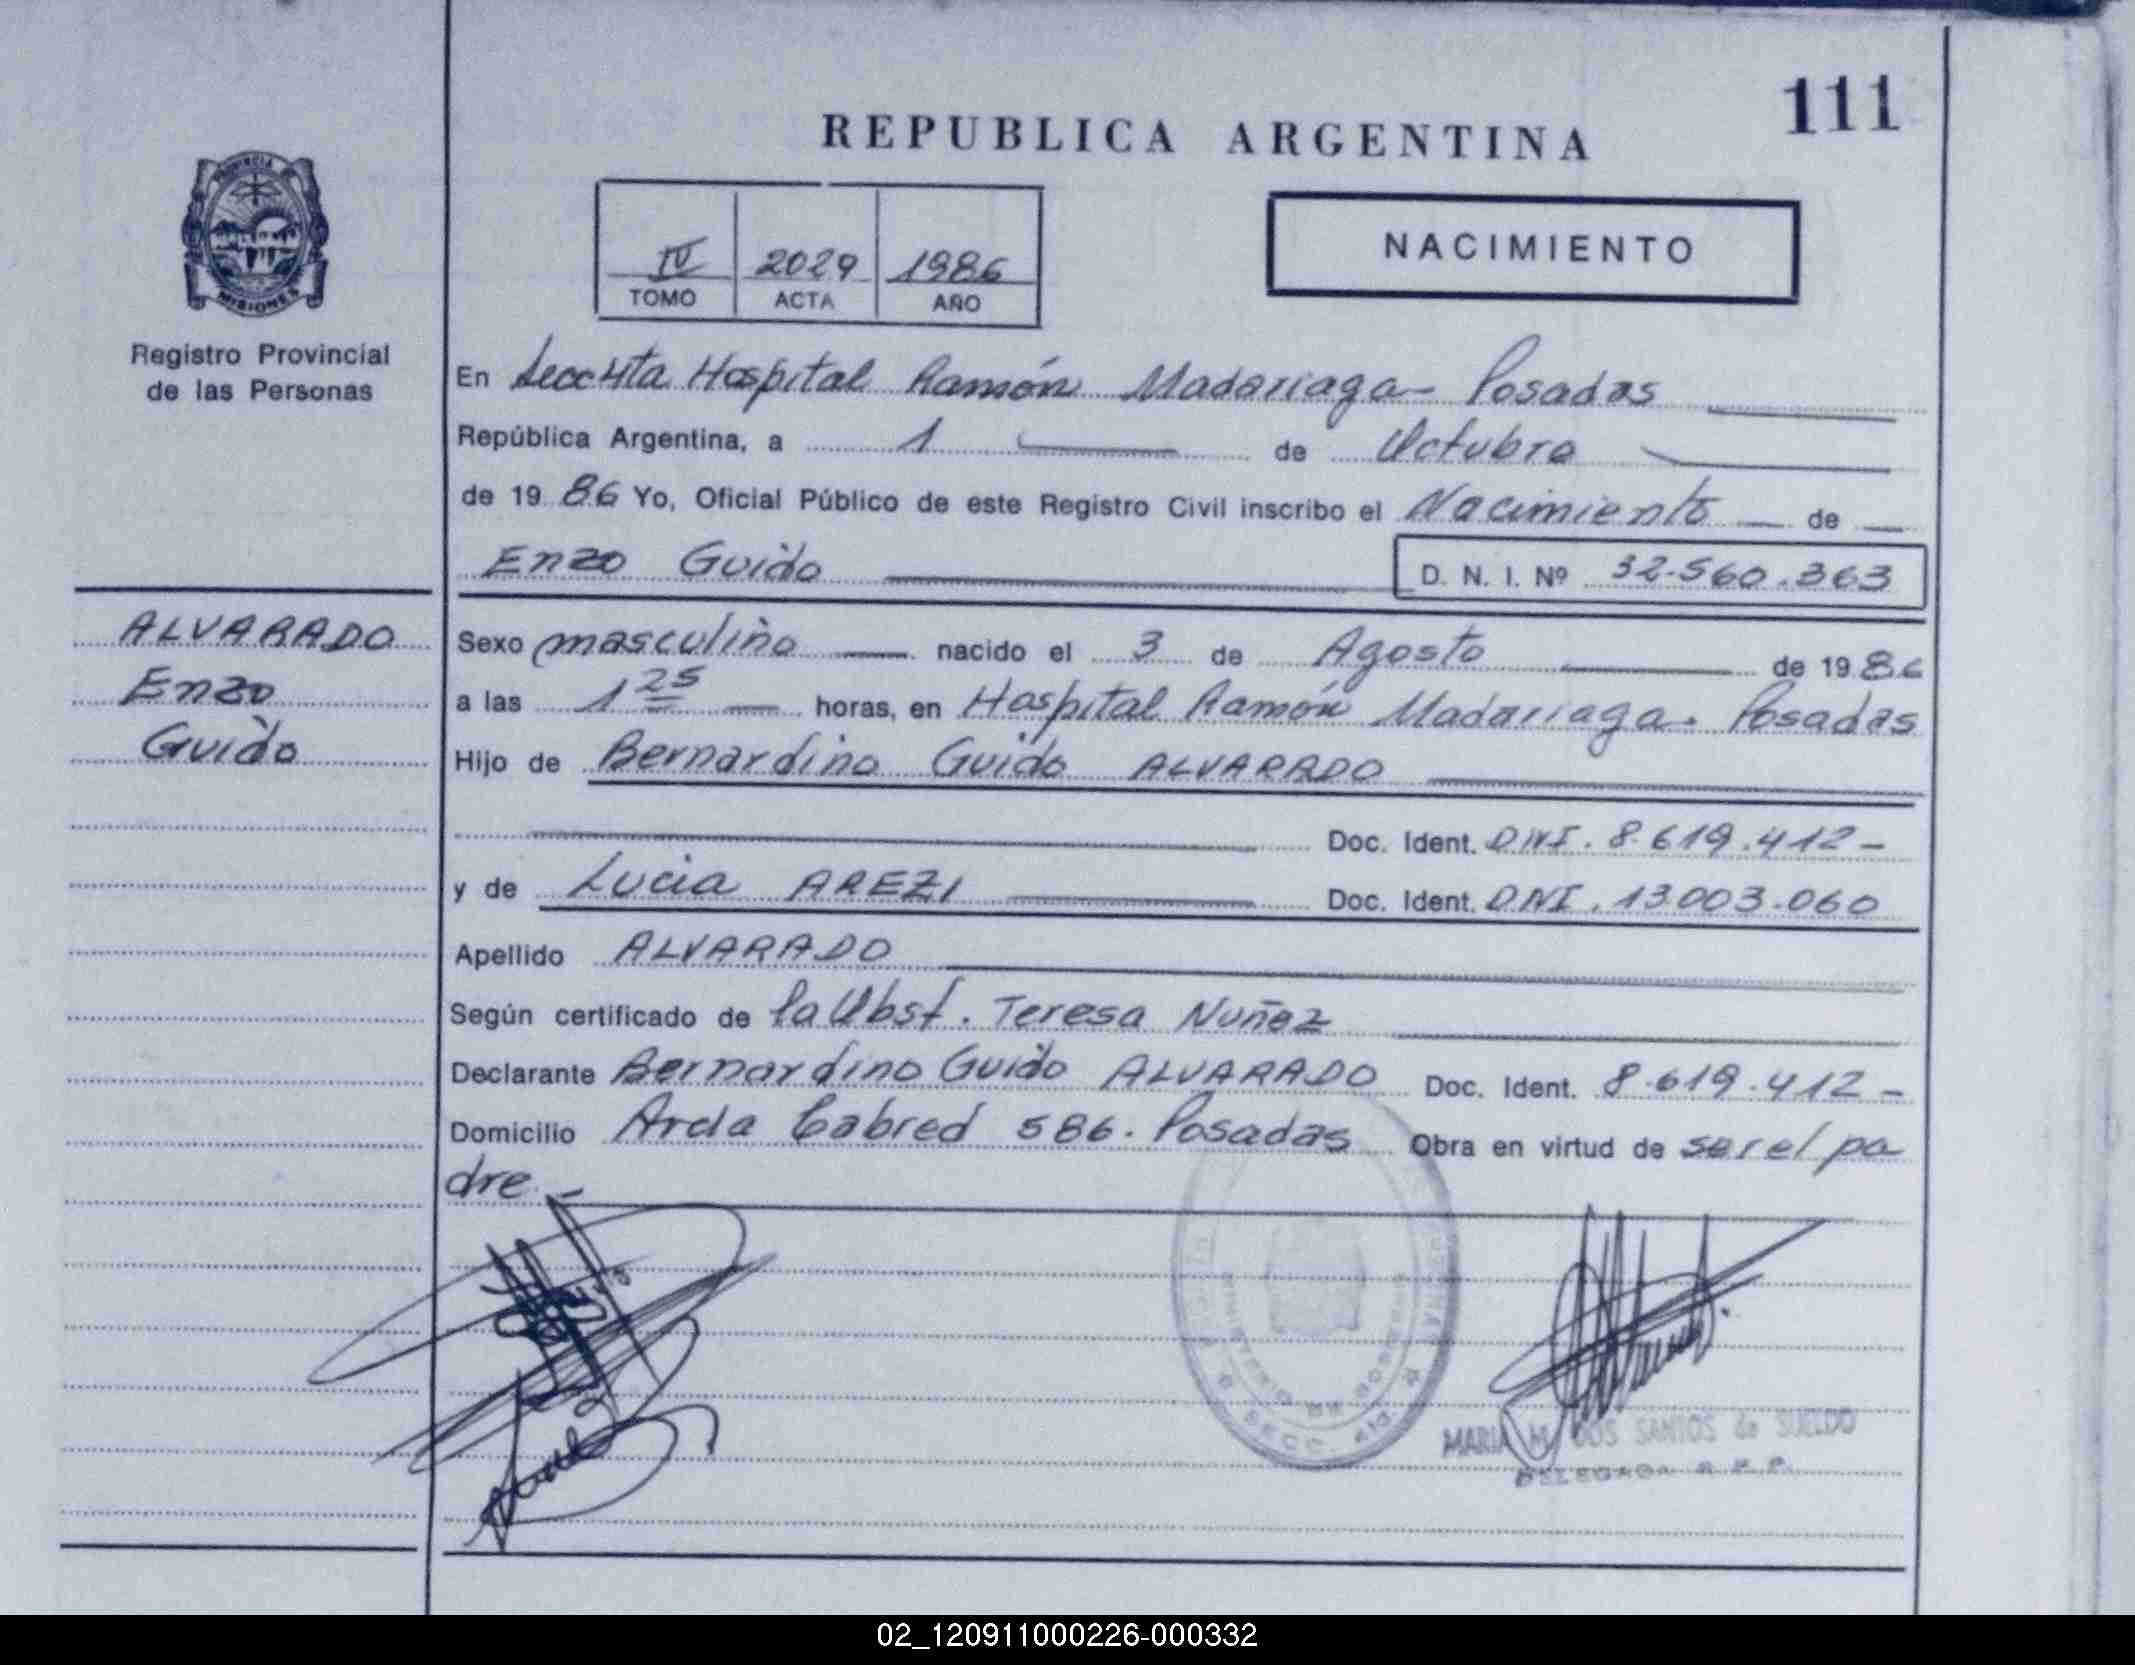 111
REPUBLICA ARGENTINA
PROVINCIA DE
MISIONES
Registro Provincial
de las Personas
IV 2029 1986
TOMO ACTA AÑO
NACIMIENTO
En Secc 4ta Hospital Ramón Madariaga - Posadas
República Argentina, a 1 de Octubre
de 1986 Yo, Oficial Público de este Registro Civil inscribo el Nacimiento de
Enzo Guido D. N. I. Nº 32.560.363
ALVARADO
Enzo
Guido
Sexo masculino nacido el 3 de Agosto de 1986
a las 1 25 horas, en Hospital Ramón Madariaga. Posadas
Hijo de Bernardino Guido ALVARADO
Doc. Ident. DNI. 8.619.412-
y de Lucia AREZI Doc. Ident. DNI. 13.003.060
Apellido ALVARADO
Según certificado de la Obst. Teresa Nuñez
Declarante Bernardino Guido ALVARADO Doc. Ident. 8.619.412-
Domicilio Avda Cabred 586. Posadas Obra en virtud de ser el pa
dre.-
MINISTERIO DE GOBIERNO
SECC. 4ta.
MARIA M. DOS SANTOS de SUELDO
DELEGADA R.P.P.
02_120911000226-000332